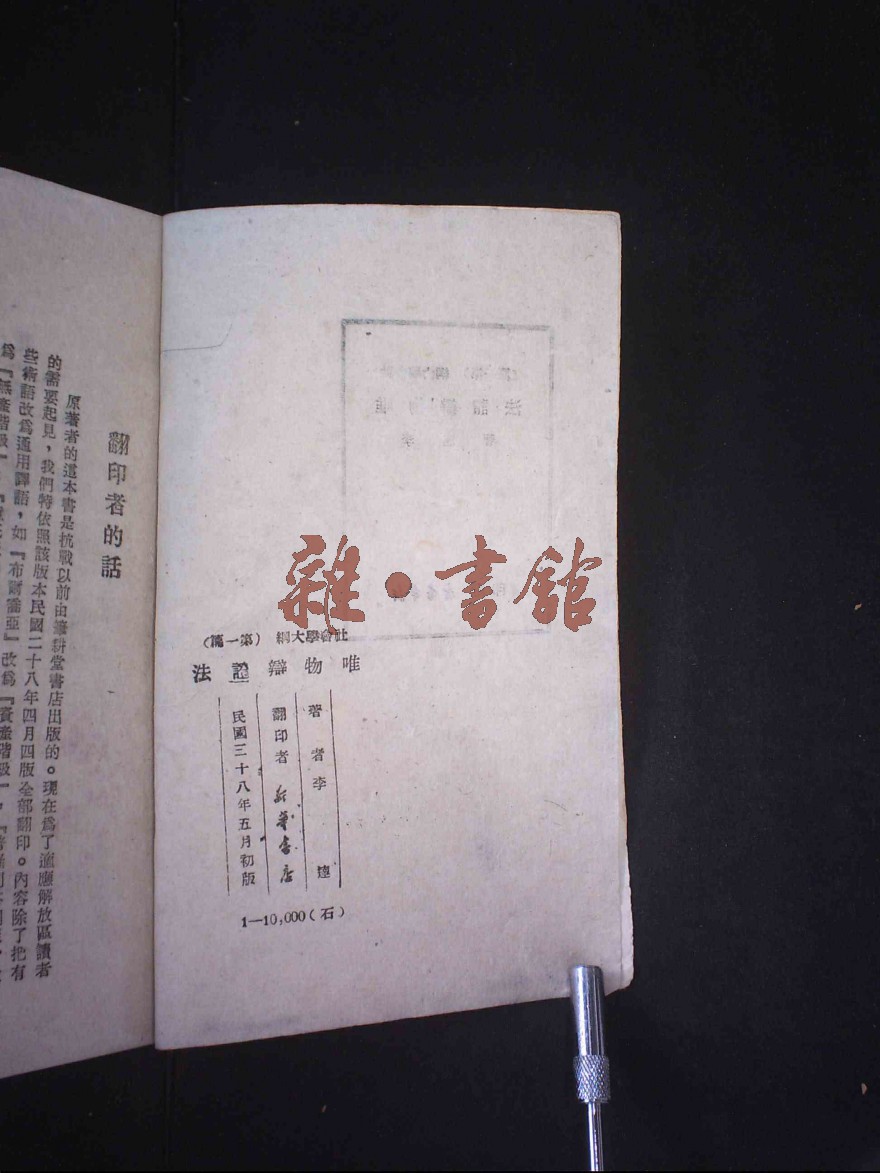 社會學大綱 （第一篇）
唯物辯證法
著者李達
翻印者 新華書店
民國三十八年五月初版
1—10,000（石）
雜·書館
翻印者的話
原著者的這本書是抗戰以前由筆耕堂書店出版的。現在爲了適應解放區讀者
的需要起見，我們特依照該版本民國二十八年四月四版全部翻印。內容除了把有
些術語改爲通用譯語，如『布爾喬亞』改爲『資產階級』，
爲『無產階級』